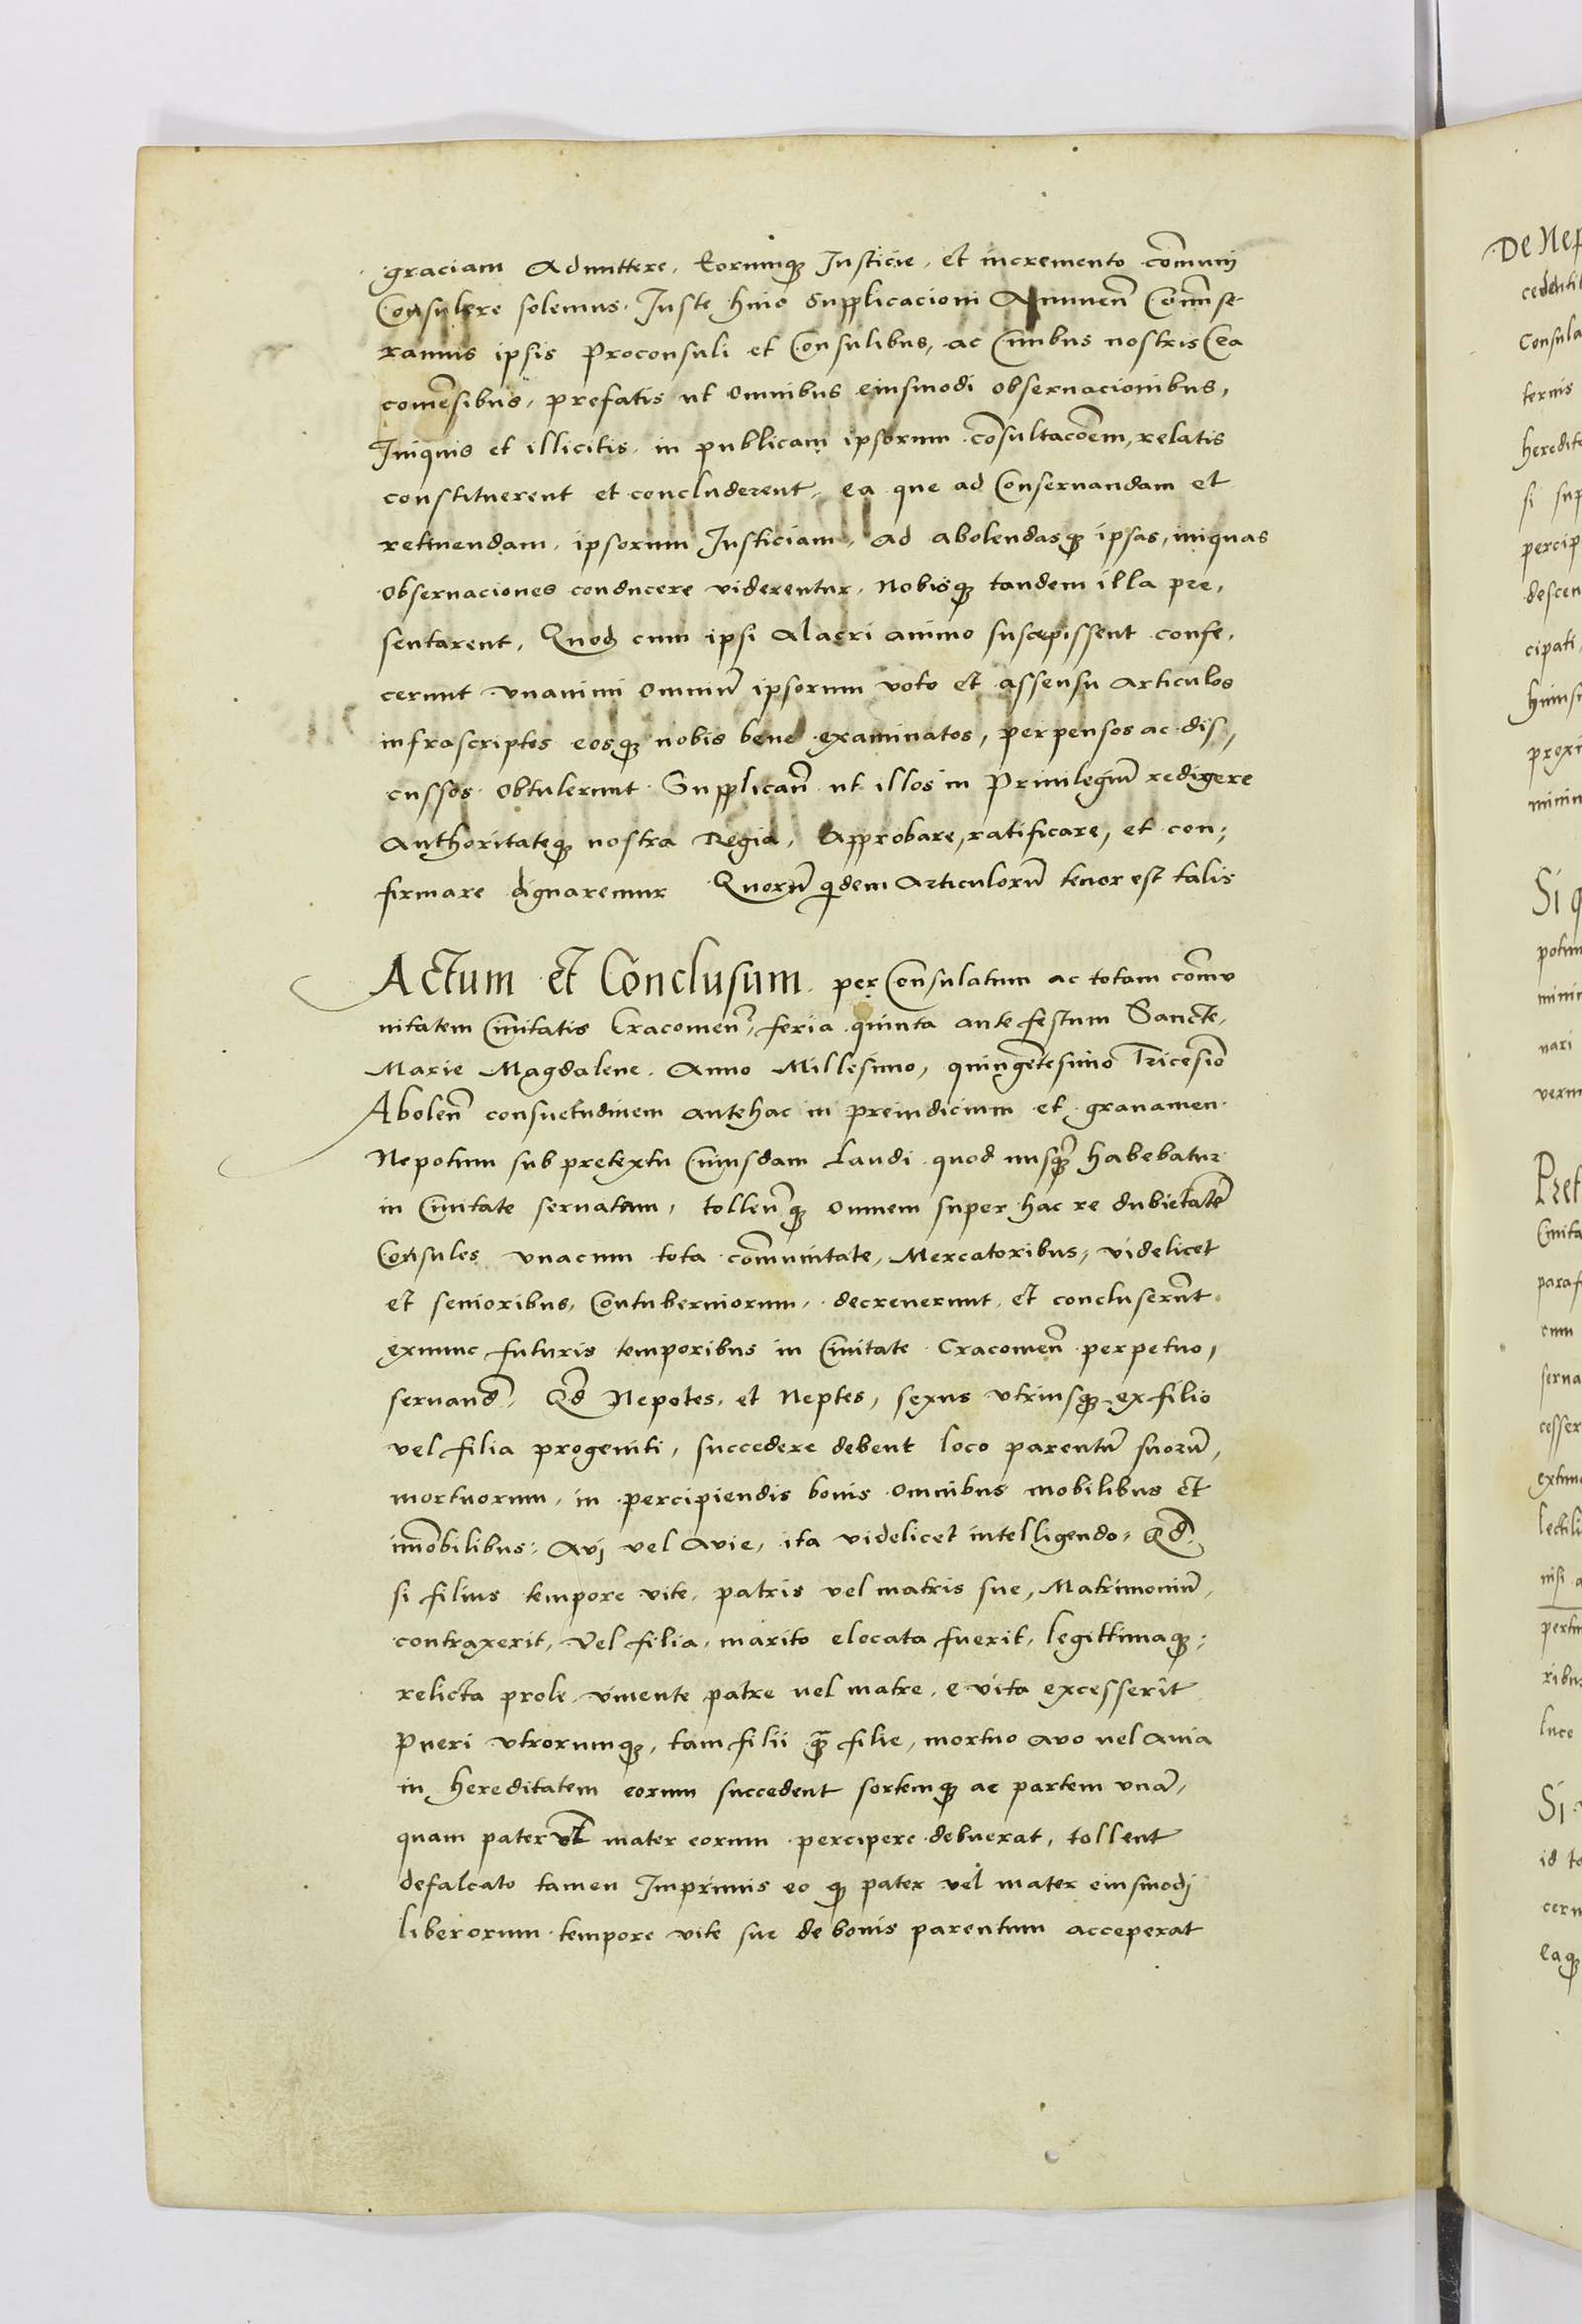 graciam Admittere, Eorumq₃ Justicie, et incremento com̃uni
Consulere solemus. Juste huic Supplicacioni Annuen̄ Com̃ise-
ramus ipsis Proconsuli et Consulibus, ac Ciuibus nostris Cra
comen̄sibus, prefatis ut omnibus eiusmodi obseruacionibus,
Iniquis et illicitis, in publicam ipsorum consultacōem, relatis
constituerent et concluderent, ea que ad Conseruandam et
retinendam, ipsorum Justiciam, ad abolendasq₃ ipsas, iniquas
Obseruaciones conducere viderentur, Nobisq₃ tandem illa pre,
sentarent, Quod cum ipsi alacri animo suscepissent confe,
cerunt vnanimi omniū ipsorum voto et assensu articulos
infrascriptos eosq₃ nobis bene examinatos, perpensos ac dis,
cussos obtulerunt Supplican̄ ut illos in Priuilegiū redigere
Authoritateq₃ nostra Regia, Approbare, ratificare, et con;
firmare dignaremur Quorū qͥdem Articulorū tenor est talis
Actum et Conclusum per Consulatum ac totam com̄u
nitatem Ciuitatis Cracouien̄, feria quinta ante festum Sancte,
Marie Magdalene. Anno Millesimo, quingētesimo Tricesīo
Abolen̄ consuetudinem antehac in preiudicium et grauamen
Nepotum sub pretextu Cuiusdam Laudi quod nusq̄ habebatur
in Ciuitate seruatam, tollen̄q₃ omnem super hac re dubietatē
Consules vnacum tota com̄unitate, Mercatoribus, videlicet
et senioribus, Contuberniorum, decreuerunt, et concluserūt
exnunc futuris temporibus in Ciuitate Cracouien̄ perpetuo,
seruand̄, Qd̄ Nepotes, et Neptes, sexus vtriusq₃ ex filio
vel filia progeniti, succedere debent loco parentū suorū,
mortuorum, in percipiendis bonis omnibus mobilibus et
im̄obilibus, Avj vel Avie, ita videlicet intelligendo, Qd̄
si filius tempore vite, patris vel matris sue, Matrimoniū
contraxerit, Vel filia, marito elocata fuerit, legittimaq₃;
relicta prole, viuente patre uel matre, e vita excesserit
Pueri vtrorumq₃, tam filii q̄ filie, mortuo avo uel auia
in hereditatem eorum succedent sortemq₃ ac partem vnā,
quam pater vꝉ mater eorum percipere debuerat, tollent
defalcato tamen Imprimis eo q₃ pater vel mater eiusmodj
liberorum tempore vite sue de bonis parentum acceperat
De Nep
cedenti
Consula
ternis
heredit
si sup
percip
descen
cipati
huiusi
proxi
minin
Si q
potum
minin
nari
verm
Pret
Ciuita
paraf
cum
serua
cesser
extunc
lectili
nisi a
pertin
ribus
luce
Si
id to
cern
Eaq₃